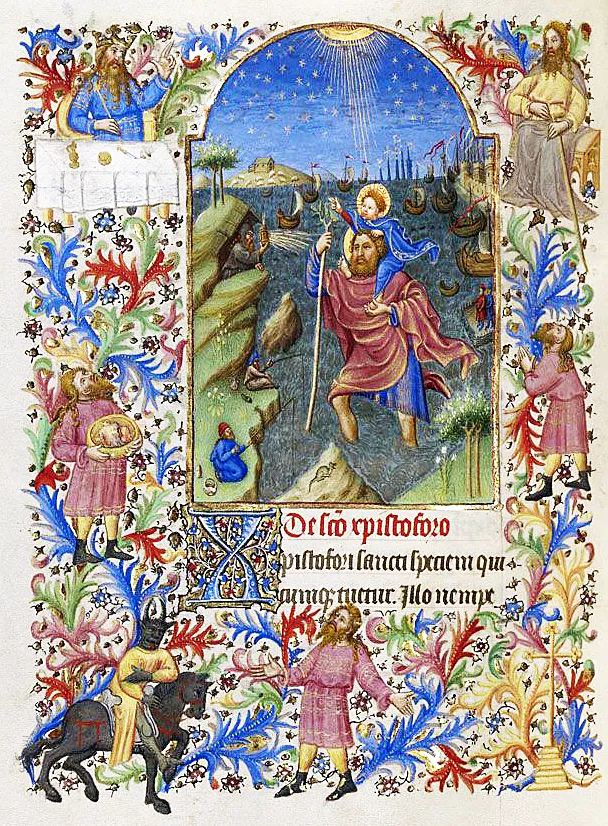 De sc̄o xpistoforo
Xpistofori sancti speciem qui
cumqꝫ tuetur. Illo nempe